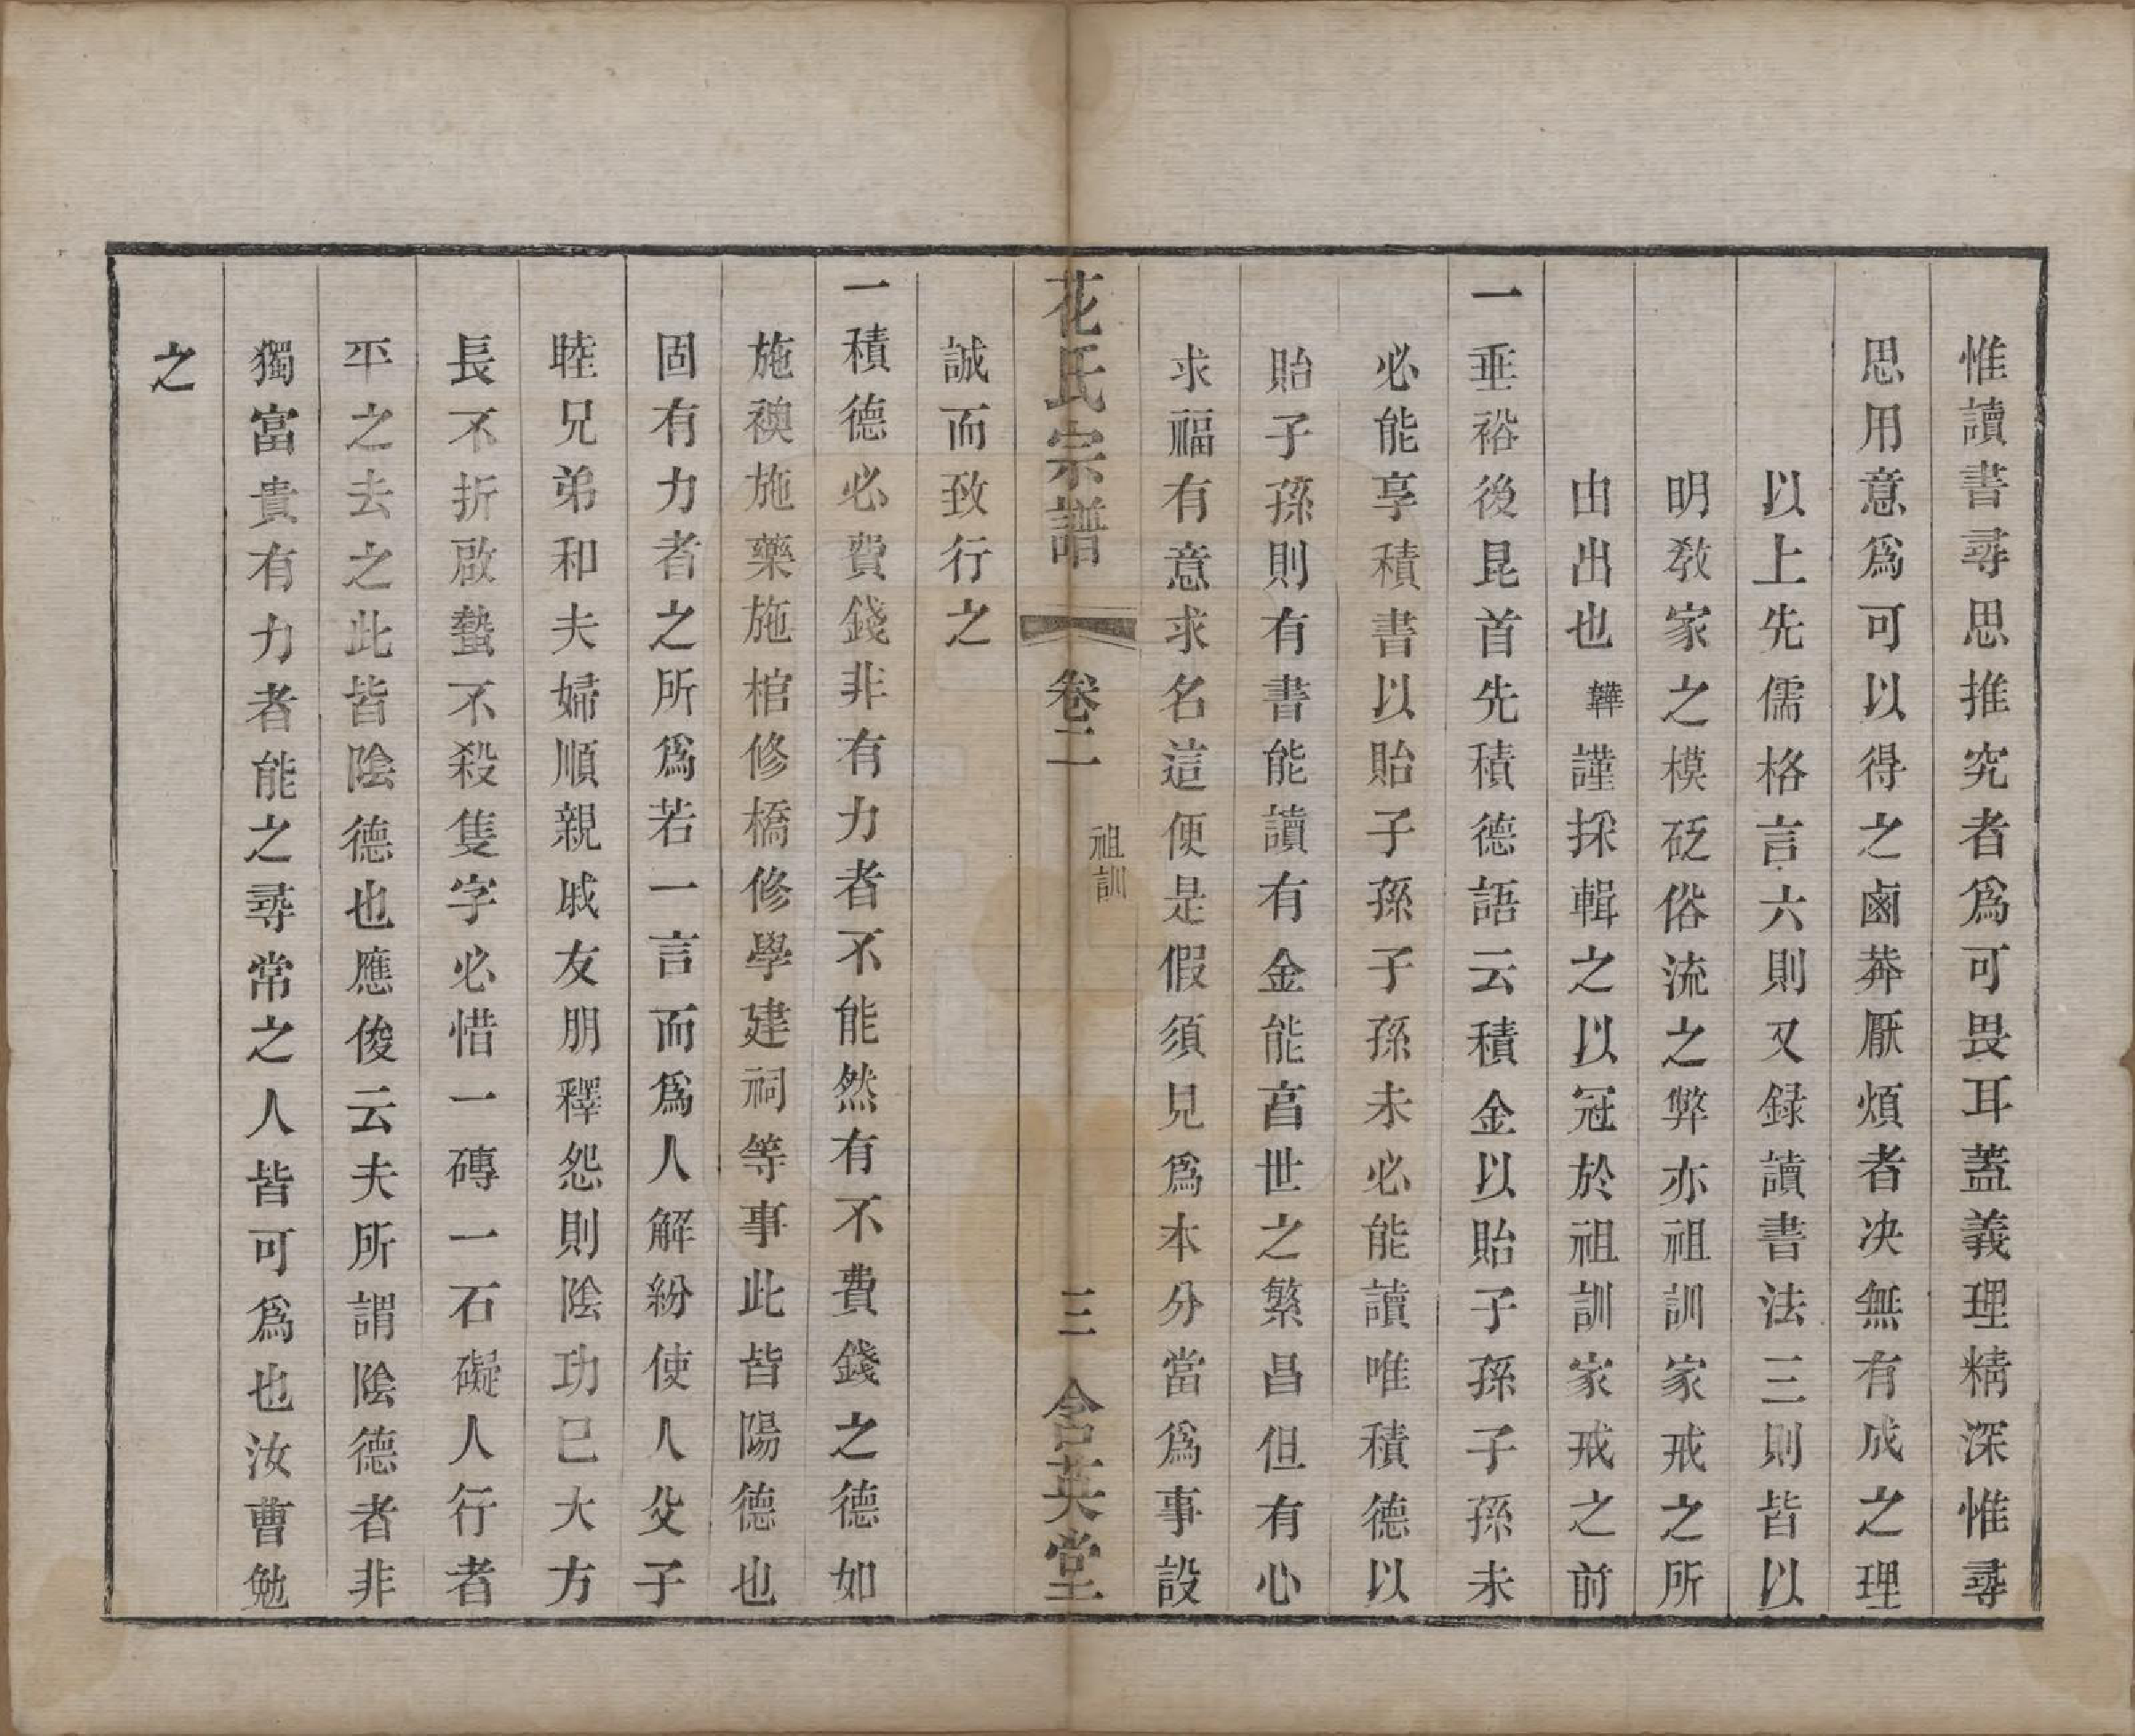 惟讀書尋思推究者爲可畏耳蓋義理精深惟尋
思用意爲可以得之鹵莽厭煩者决無有成之理
以上先儒格言六則又録讀書法三則皆以
明教家之模砭俗流之弊亦祖訓家戒之所
由出也韡謹採輯之以冠於祖訓家戒之前
一垂裕後昆首先積德語云積金以貽子孫子孫未
必能享積書以貽子孫子孫未必能讀唯積德以
貽子孫則有書能讀有金能亯世之繁昌但有心
求福有意求名這便是假須見爲本分當爲事設
花氏宗譜 卷二 祖訓 三 含英堂
誠而致行之
一積德必費錢非有力者不能然有不費錢之德如
施襖施藥施棺修橋修學建祠等事此皆陽德也
固有力者之所爲若一言而爲人解紛使人父子
睦兄弟和夫婦順親戚友朋釋怨則陰功已大方
長不折啟蟄不殺隻字必惜一磚一石礙人行者
平之去之此皆陰德也應俊云夫所謂陰德者非
獨富貴有力者能之尋常之人皆可爲也汝曹勉
之